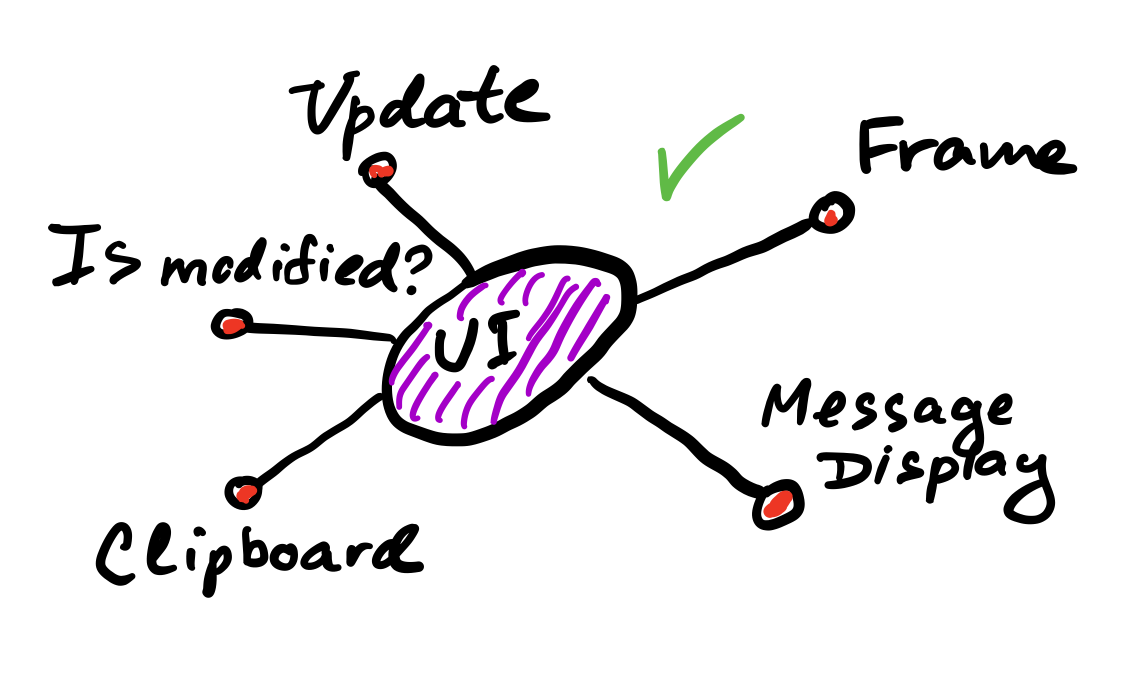 Update
Frame
Is modified?
UI
Message
Display
Clipboard